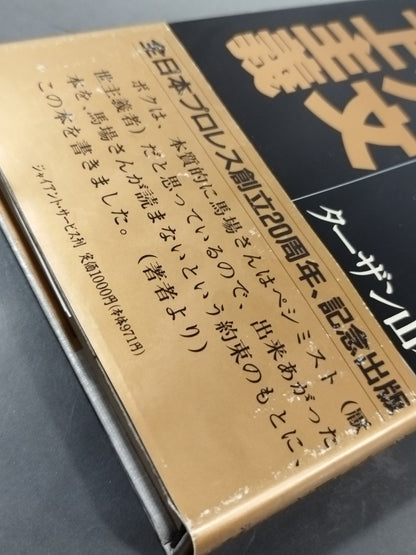 主義
ターザン山
全日本プロレス創立20周年、記念出版
ボクは、本質的に馬場さんはペシミスト（厭
世主義者）だと思っているので、出来あがった
本を、馬場さんが読まないという約束のもとに、
この本を書きました。 （著者より）
ジャイアントサービス刊 定価1000円(本体971円)